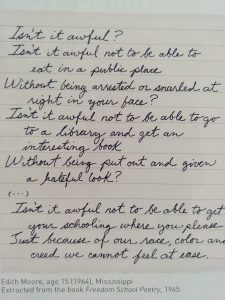 Isn't it awful?
Isn't it awful not to be able to
eat in a public place
Without being arrested or snarled at
right in your face?
Isn't it awful not to be able to go
to a library and get an
interesting book
Without being put out and given
a hateful look?
(...)
Isn't it awful not to be able to get
your schooling where you please
Just because of our race, color and
creed we cannot feel at ease.
Edith Moore, age 15 (1964), Mississippi
Extracted from the book Freedom School Poetry, 1965